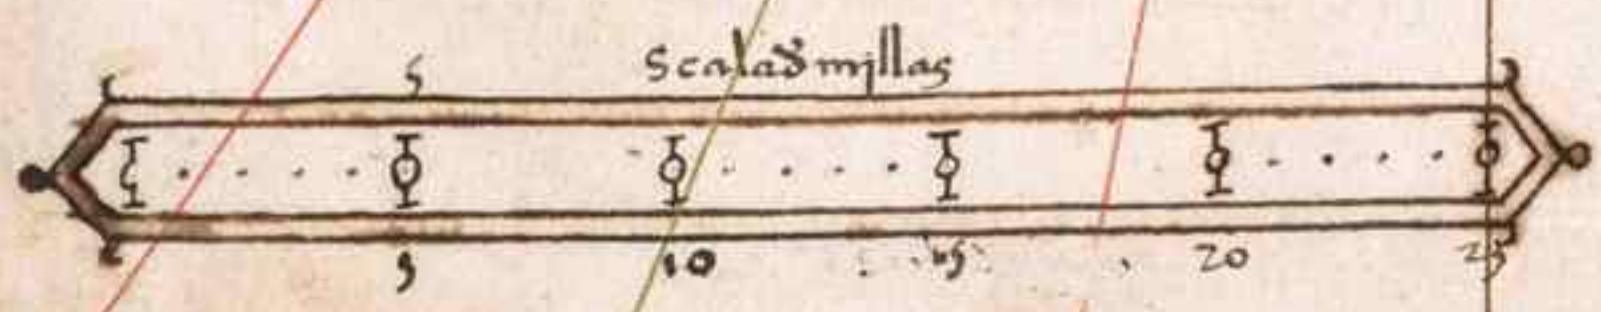 Scala dẽ mjllas
5
5 10 15 20 25